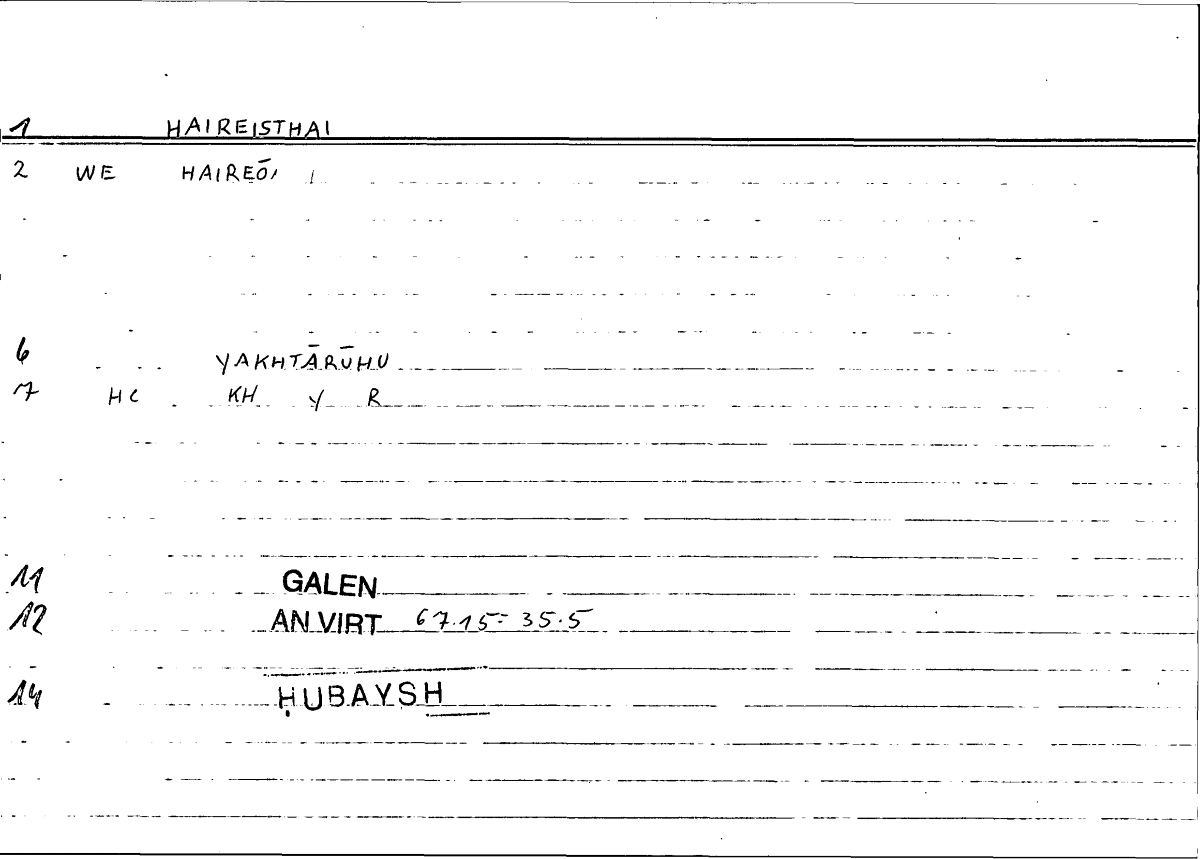 1 HAIREISTHAI
2 WE HAIREŌ,
6 YAKHTĀRŪHU
7 HC KH Y R
11 GALEN
12 AN VIRT 67.15 = 35.5
14 ḤUBAYSH